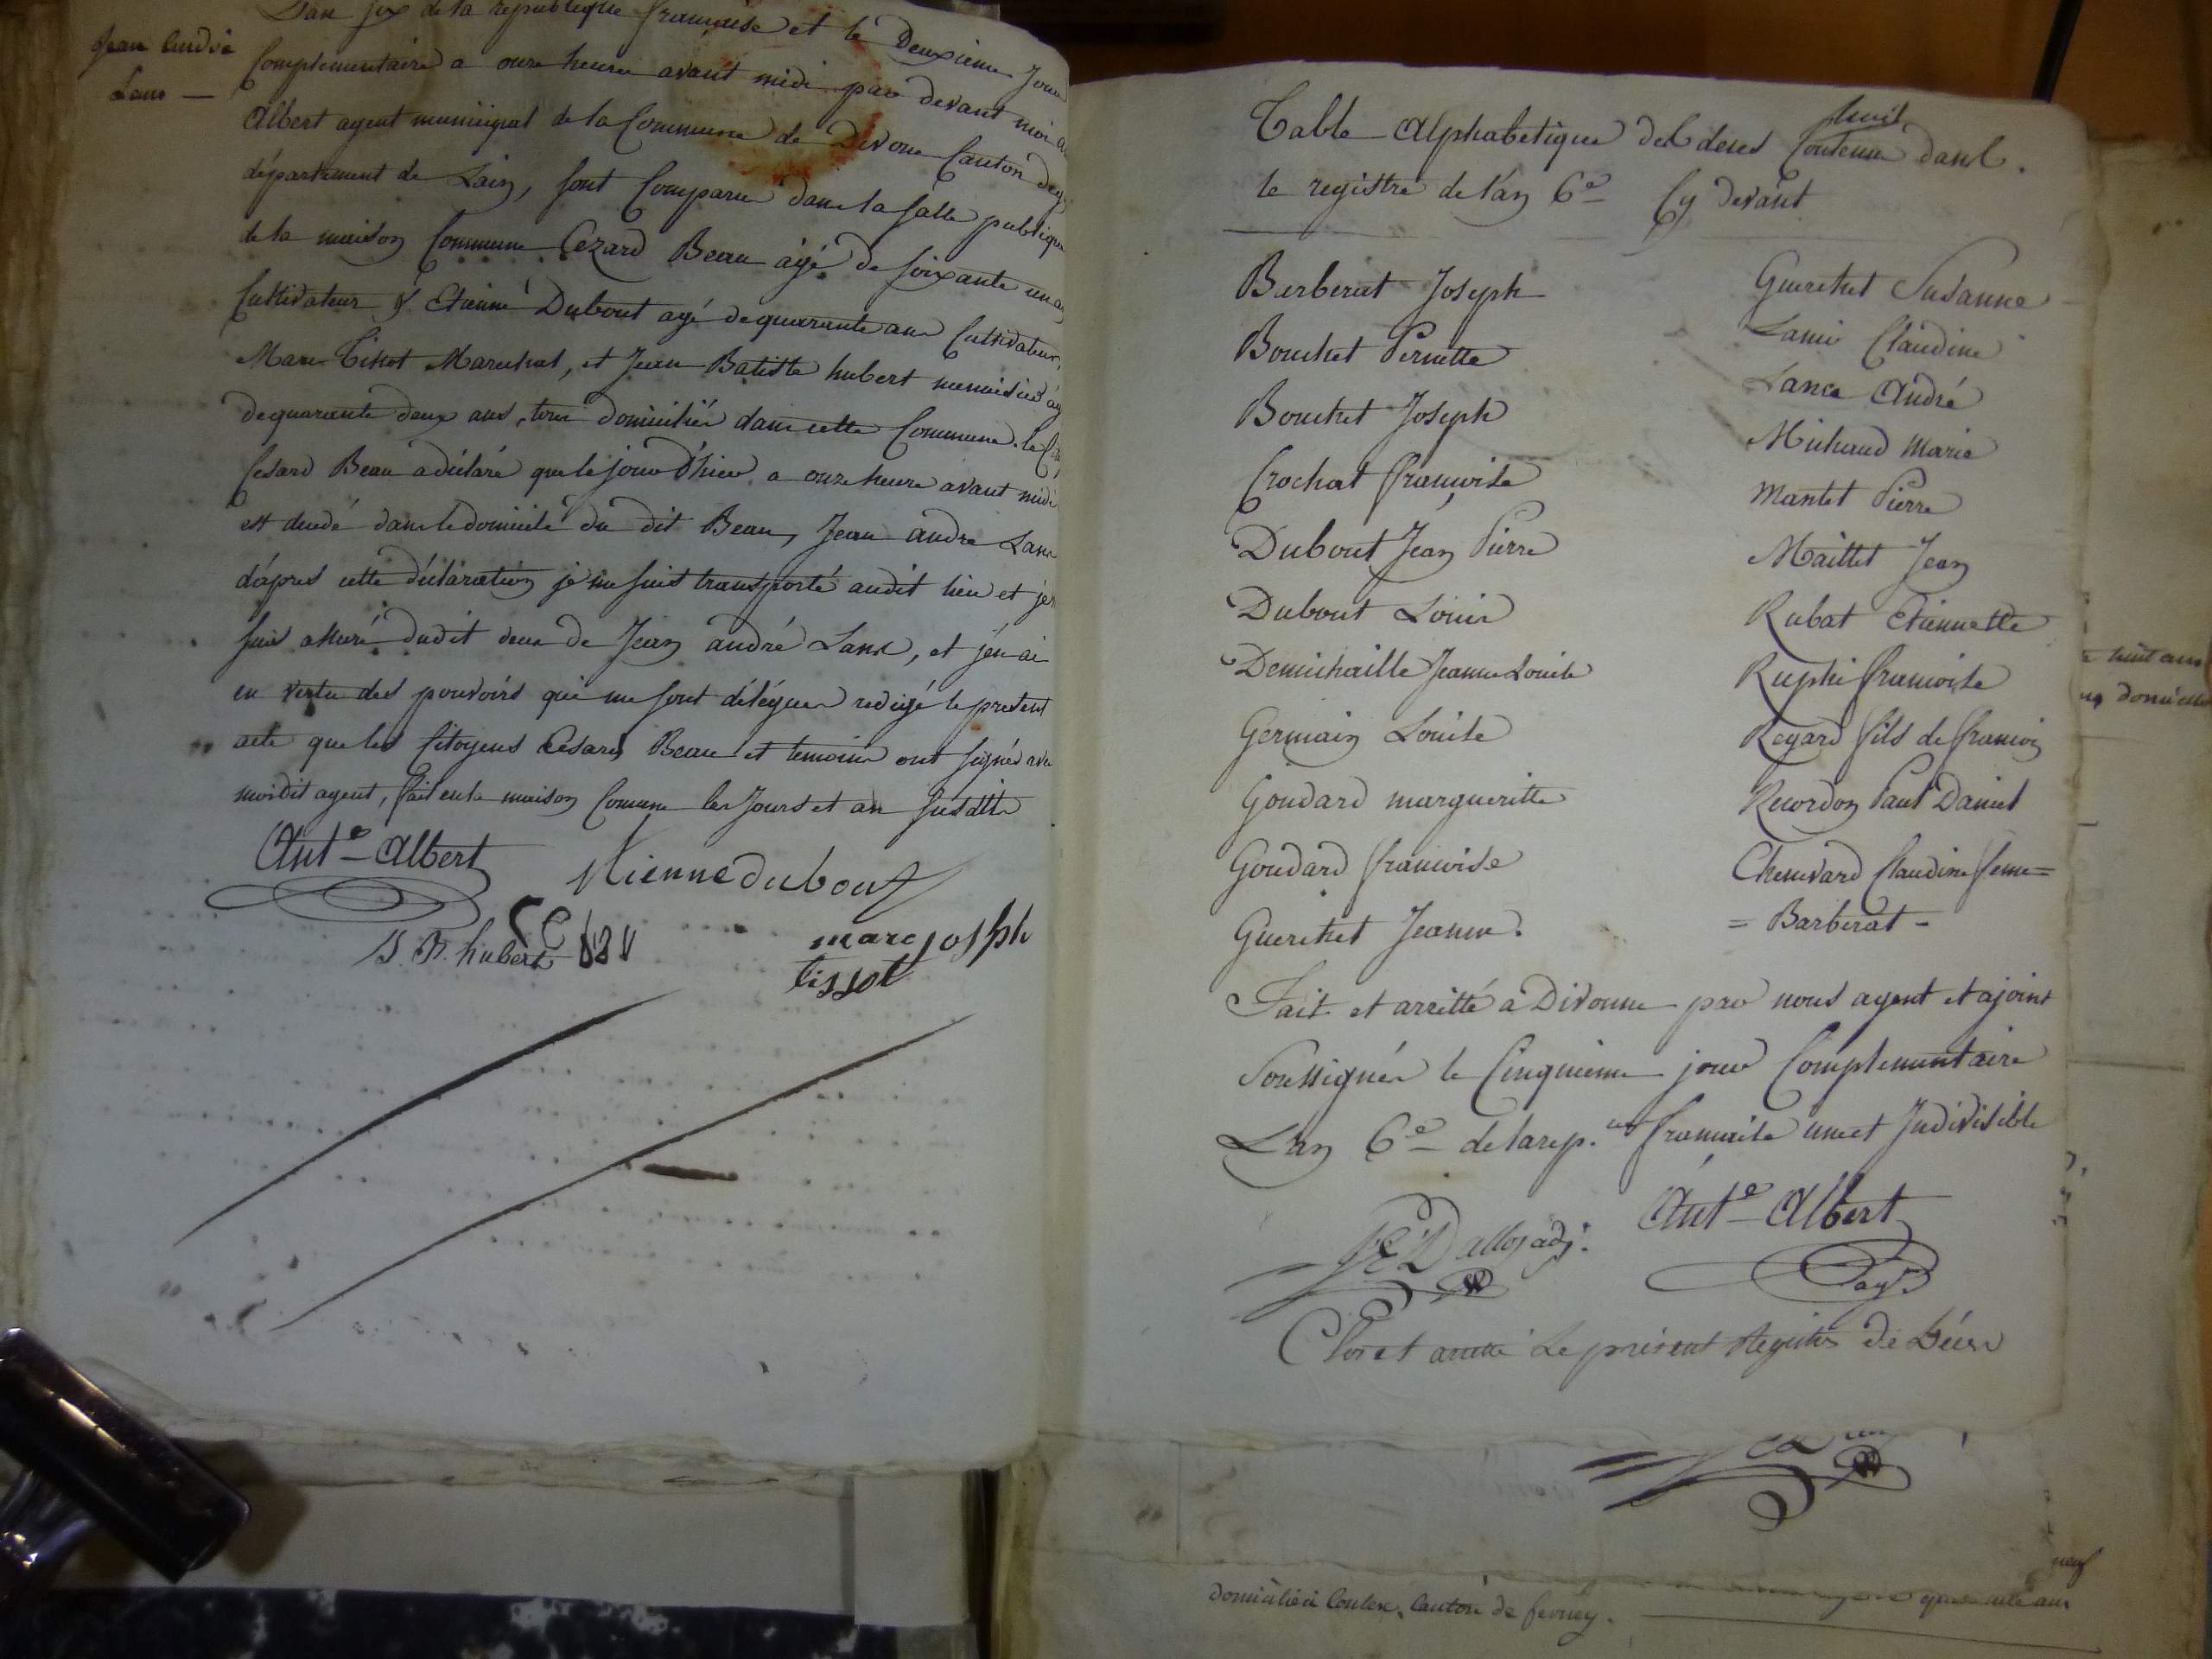 Jean André
Lanc —
L'an six de la republique française et le Deuxieme Jour
Complementaire a onze heures avant midi par devant moi
Albert agent municipal de la Commune de Divone Canton de
département de Lain, sont Comparu dans la salle publique
de la maison Commune Cezard Beau agé de soixante un
Cultivateur & Etienne Dubout agé de quarante ans Cultivateur,
Marc Tissot Marechal, et Jean Batiste hubert menuisier ag
de quarante deux ans, tous domiciliés dans cette Commune. le
Cesard Beau a déclaré que le jour d'hier a onze heure avant midi
est decedé dans le domicile du dit Beau, Jean andre Lanc
d'apres cette déclaration je me suis transporté au dit lieu et je
suis assuré du dit deces de Jean andré Lanc, et j'en ai
en vertu des pouvoirs qui me sont délégues redigé le present
acte que les Citoyens Cesard Beau et temoins ont signés avec
moi dit agent, fait en la maison Comune les Jours et an susdits
Ant.e Albert
Etienne dubout
J. B. hubert
marc joseph
tissot
Table Alphabetique des deces Contenu dans
le registre de l'an 6e Cy devant
Barberat Joseph
Bouchet Pernette
Bouchet Joseph
Crochat françoise
Dubout Jean Pierre
Dubout Louis
Demichaille Jeanne Louise
Germain Louise
Goudard marguerite
Goudard françoise
Guerchet Jeanne.
Guerchet Susanne
Lami Claudine
Lance André
Michaud Marie
Mantet Pierre
Maillet Jean
Rubat Etiennette
Ruphi françoise
Regard fils de françois
Recordon Paul Daniel
Chenevard Claudine feme =
= Barberat -
Fait et arretté a Divonne par nous agent et ajoint
Soussignés le Cinquieme jour Complementaire
L'an 6e de la rep.que française une et Indivisible
Dallos adj.
Ant.e Albert
agt
Clos et arretté Le présent Registre de Décès
domicilié à Coulex, Canton de ferney.